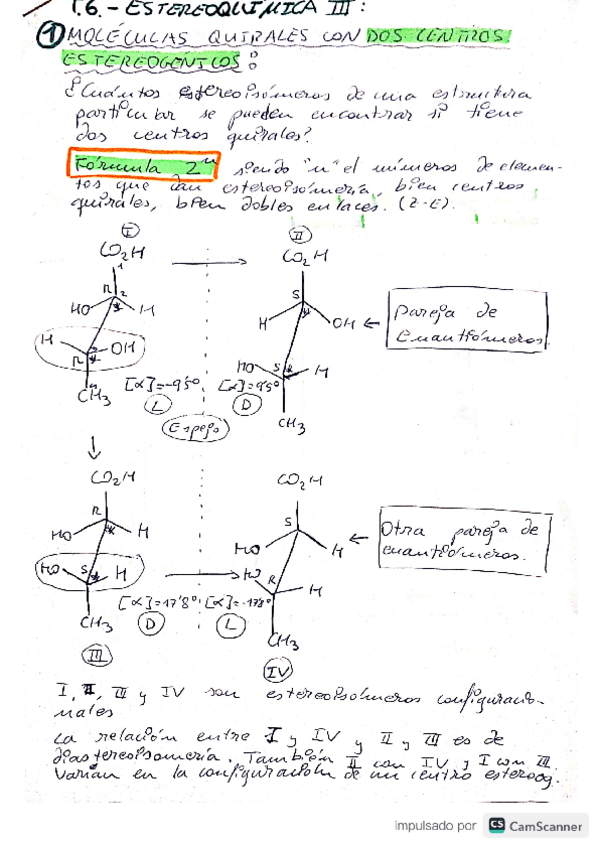 T.6.- ESTEREOQUÍMICA III:
① MOLÉCULAS QUIRALES CON DOS CENTROS
ESTEREOGÉNICOS:
¿Cuántos estereoisómeros de una estructura
particular se pueden encontrar si tiene
dos centros quirales?
Fórmula 2ⁿ siendo "n" el números de elemen-
tos que dan estereoisomería, bien centros
quirales, bien dobles enlaces. (Z-E).
I II
CO₂H CO₂H
1
R 2 S
HO H H OH ← Pareja de
Enantiómeros
H OH HO S R H
R
4
CH₃ [α]=-9'5° [α]=9'5°
L D CH₃
Espejo
CO₂H CO₂H
R S
HO H HO H ← Otra pareja de
enantiómeros.
HO S H HO R H
[α]=17'8° [α]=-17'8°
CH₃ D L CH₃
III IV
I, II, III y IV son estereoisómeros configuracio-
nales
La relación entre I y IV y II y III es de
diastereoisomería. También II con IV y I con III.
Varían en la configuración de un centro estereog.
impulsado por CS CamScanner